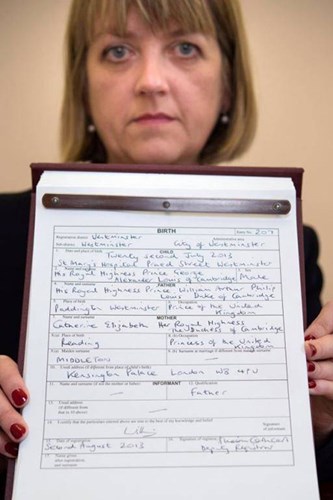 BIRTH Entry No. 207
Registration district Westminster Administrative area
Sub-district Westminster City of Westminster
1. Date and place of birth CHILD
Twenty second July 2013
St Mary's Hospital Praed Street Westminster
2. Name and surname 3. Sex
His Royal Highness Prince George
Alexander Louis of Cambridge Male
4. Name and surname FATHER
His Royal Highness Prince William Arthur Philip
Louis Duke of Cambridge
5. Place of birth 6. Occupation
Paddington Westminster Prince of the United
Kingdom
7. Name and surname MOTHER
Catherine Elizabeth Her Royal Highness
The Duchess of Cambridge
8. Place of birth
Reading Princess of the United
Kingdom
9.(a) Maiden surname
MIDDLETON
10. Usual address
Kensington Palace London W8 4PU
11. Name and surname (if not the mother or father) INFORMANT 12. Qualification
Father
13. Usual address
(if different from
that in 10 above)
14. I certify that the particulars entered above are true to the best of my knowledge and belief
Signature
of informant
15. Date of registration 16. Signature of registrar
Second August 2013 Deputy Registrar
17. Name
given after registration,
and surname